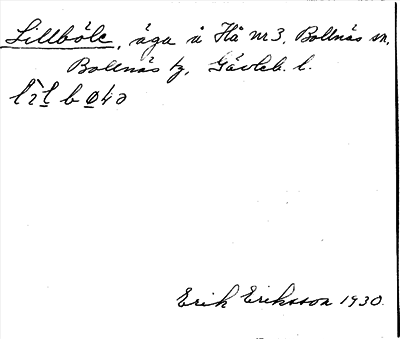 Lillböle, äga å Hå nr 3, Bollnäs sn,
Bollnäs tg, Gävleb. l.
Erik Eriksson 1930.